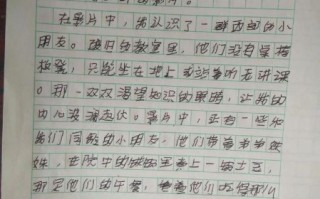 在影片中，我认识了一群西部的小
朋友。破旧的教室里，他们没有桌椅
板凳，只能坐在地上或站着听老师讲课
。那一双双渴望知识的眼睛，让我的
内心波澜起伏。影片中，还有一些和
我们同龄的小朋友，他们带着弟弟妹
妹，在院中的
那是他们的午餐，他们吃得那么